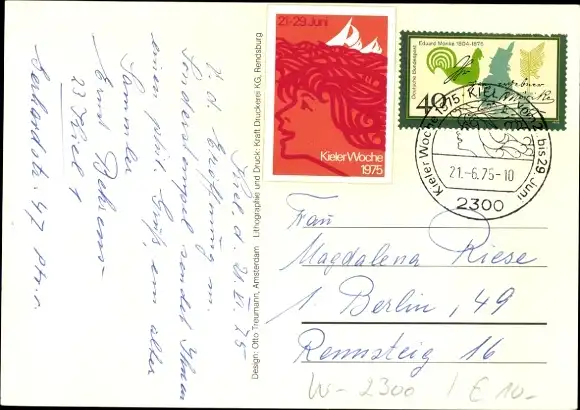 Kiel, d. 21. VI. 75
z. d. Eröffnung m.
Sonderstempel sendet Ihnen
einen phil. Gruß, ein alter
Sammler
Ernst Behrens
23 Kiel 1
47 ptr. r.
Design: Otto Treumann, Amsterdam Lithographie und Druck: Kraft Druckerei KG, Rendsburg
21-29 Juni
Kieler Woche
1975
Eduard Mörike 1804-1875
Deutsche Bundespost
40
Kieler Woche 1975 · KIEL
bis 29. Juni
21.-6.75-10
2300
Frau
Magdalena Riese
1 Berlin, 49
Rennsteig 16
W-2300 / € 10-